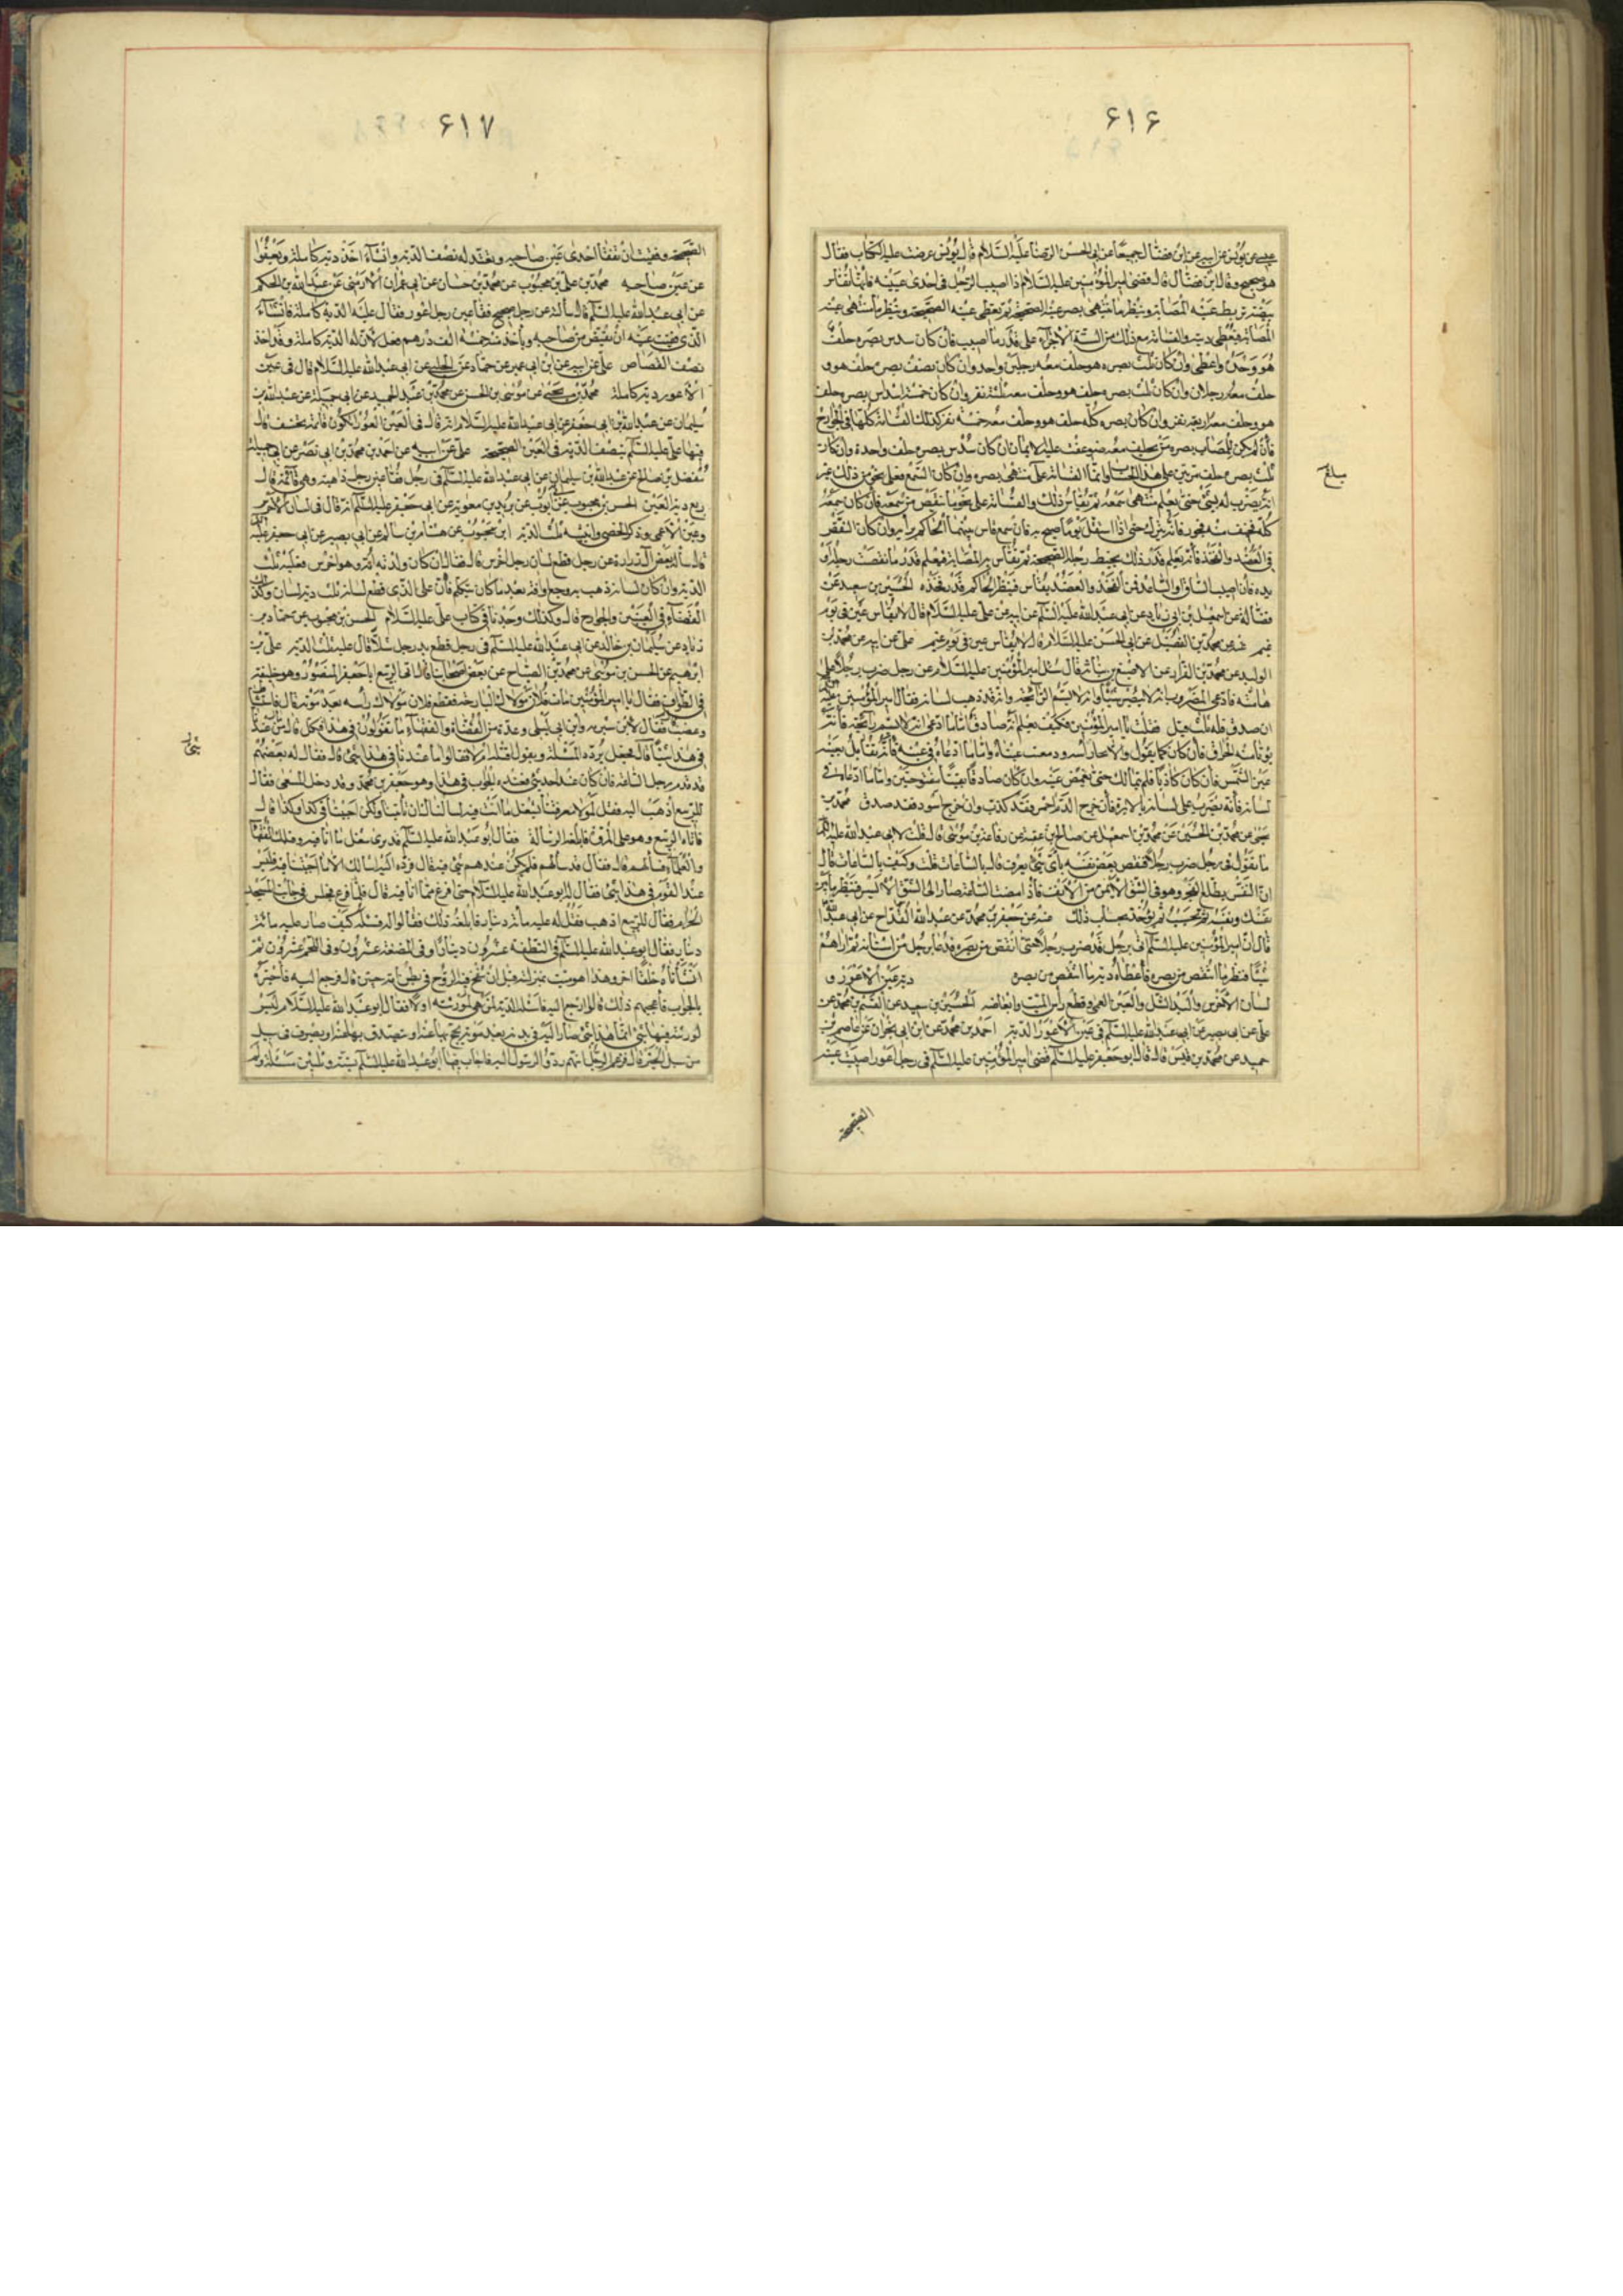 ۶۱۶
عيسى عن يونس عن ابيه عن ابن فضال جميعا عن ابى الحسن الرضا عليه السلام قال يونس عرضت عليه الكتاب فقال
هو صحيح وقال ابن فضال قال قضى امير المؤمنين عليه السلام اذا اصيب الرجل فى احدى عينيه فانها تقاس
ببيضة تربط على عينه المصابة وينظر ما منتهى بصر عينه الصحيحة ثم تغطى عينه الصحيحة وينظر ما منتهى عينه
المصابة فيعطى ديته والقسامة مع ذلك من الستة الاجزاء على قدر ما اصيب فان كان سدس بصره حلف
هو وحده واعطى وان كان ثلث بصره حلف هو وحلف معه رجل واحد وان كان نصف بصره حلف هو و
حلف معه رجلان وان كان ثلثى بصره حلف هو وحلف معه ثلثة نفر وان كان خمسة اسداس بصره حلف
هو وحلف معه اربعة نفر وان كان بصره كله حلف هو وحلف معه خمسة نفر كذلك القسامة كلها فى الجروح
فان لم يكن للمصاب بصره من يحلف معه ضوعفت عليه الايمان ان كان سدس بصره حلف واحدة وان كان
ثلث بصره حلف مرتين على هذا الحساب وانما القسامة على منتهى بصره وان كان السمع فعلى نحو من ذلك غير
انه يضرب له بشئ حتى يعلم منتهى سمعه ثم يقاس ذلك والقسامة على نحو ما نقص من سمعه فان كان سمعه
كله فخيف منه فجور فانه يترك حتى اذا استقل نوما صيح به فان سمع قاس بينهما الحاكم برأيه وان كان النقص
فى العضد والفخذ فانه يعلم قدر ذلك بخيط رجله الصحيحة ثم يقاس به المصابة فيعلم قدر ما نقصت رجله او
يده فان اصيب الساق او الساعد فمن الفخذ والعضد يقاس فينظر الحاكم قدر فخذه الحسين بن سعيد عن
فضالة عن اسمعيل بن ابى زياد عن ابى عبد الله عليه السلام عن ابيه عن على عليه السلام قال لا يقاس عين فى يوم
غيم عنه عن محمد بن الفضيل عن ابى الحسن عليه السلام قال لا يقاس عين فى يوم غيم على عن ابيه عن محمد بن
الوليد عن محمد بن الفرات عن الاصبغ بن نباتة قال سئل امير المؤمنين عليه السلام عن رجل ضرب رجلا على
هامته فادعى المضروب انه لا يبصر شيئا وانه لا يشم الرائحة وانه قد ذهب لسانه فقال امير المؤمنين عليه السلام
ان صدق فله ثلث ديات فقيل يا امير المؤمنين فكيف يعلم انه صادق فقال اما ما ادعى انه لا يشم رائحة فانه
يدنا منه الحراق فان كان كما يقول والا نحى رأسه ودمعت عينه واما ما ادعاه فى عينه فانه يقابل بعينه
عين الشمس فان كان كاذبا فلم يتمالك حتى يغمض عينه وان كان صادقا بقيتا مفتوحتين واما ما ادعاه فى
لسانه فانه يضرب على لسانه بالابرة فان خرج الدم احمر فقد كذب وان خرج اسود فقد صدق محمد بن
يحيى عن محمد بن الحسين عن محمد بن اسمعيل عن صالح بن عقبة عن رفاعة بن موسى قال قلت لابى عبد الله عليه السلام
ما تقول فى رجل ضرب رجلا فنقص بعض نفسه باى شئ يعرف قال بالساعات قلت وكيف بالساعات قال
ان النفس يطلع الفجر وهو فى الشق الايمن من الانف فاذا مضت الساعة صار الى الشق الايسر فينظر ما بين
نفسك ونفسه ثم يحسب ثم يؤخذ بحساب ذلك عنه عن جعفر بن محمد عن عبد الله القداح عن ابى عبد الله
قال اتى امير المؤمنين عليه السلام برجل قد ضرب رجلا حتى انتقص من بصره فدعا برجل من اسنانه ثم اراهم
شيئا فنظر ما انتقص من بصره فاعطاه دية ما انتقص من بصره دية عين الاعور و
لسان الاخرس واليد الشلاء والعين العمياء وقطع رأس الميت وابعاضه الحسين بن سعيد عن القسم بن محمد عن
على عن ابى بصير عن ابى عبد الله عليه السلام فى عين الاعور الدية احمد بن محمد عن ابن ابى نجران عن عاصم بن
حميد عن محمد بن قيس قال قال ابو جعفر عليه السلام قضى امير المؤمنين عليه السلام فى رجل اعور اصيبت عينه
الصحيحة
۶۱۷
الصحيحة ففقئت ان تفقأ احدى عينى صاحبه ويعقل له نصف الدية وان شاء اخذ دية كاملة ويعفوا
عن عين صاحبه محمد بن على بن محبوب عن محمد بن حسان عن ابى عمران الارمنى عن عبد الله بن الحكم
عن ابى عبد الله عليه السلام قال سألته عن رجل صحيح فقأ عين رجل اعور فقال عليه الدية كاملة فان شاء
الذى فقئت عينه ان يقتص من صاحبه ويأخذ منه خمسة الف درهم فعل لان له الدية كاملة وقد اخذ
نصف القصاص على عن ابيه عن ابن ابى عمير عن حماد عن الحلبى عن ابى عبد الله عليه السلام قال فى عين
الاعور دية كاملة محمد بن يحيى عن موسى بن الحسن عن محمد بن عبد الحميد عن ابى جميلة عن عبد الله بن
سليمان عن عبد الله بن ابى جعفر عن ابى عبد الله عليه السلام انه قال فى العين العوراء تكون قائمة تخسف قال
فيها على عليه السلام نصف الدية فى العين الصحيحة على عن ابيه عن احمد بن محمد بن ابى نصر عن ابى جميلة
مفضل بن صالح عن عبد الله بن سليمان عن ابى عبد الله عليه السلام فى رجل فقأ عين رجل ذاهبة وهى قائمة قال
ربع دية العين الحسن بن محبوب عن ابى ايوب عن بريد بن معوية عن ابى جعفر عليه السلام انه قال فى لسان الاخرس
وعين الاعمى وذكر الخصى وانثييه ثلث الدية ابن محبوب عن هشام بن سالم عن ابى بصير عن ابى جعفر عليه السلام
قال سأله بعض آل زرارة عن رجل قطع لسان رجل اخرس قال فقال ان كان ولدته امه وهو اخرس فعليه ثلث
الدية وان كان لسانه ذهب به وجع او افة بعد ما كان يتكلم فان على الذى قطع لسانه ثلث دية لسانه وكذلك
القضاء فى العينين والجوارح قال وكذلك وجدناه فى كتاب على عليه السلام الحسن بن محبوب عن حماد بن
زياد عن سليمان بن خالد عن ابى عبد الله عليه السلام فى رجل قطع يد رجل شلاء قال عليه ثلث الدية على بن
ابرهيم عن الحسن بن موسى عن محمد بن الصباح عن بعض اصحابنا قال اتى الربيع ابا جعفر المنصور وهو خليفة
فى الطواف فقال يا امير المؤمنين مات فلان مولاك البارحة فقطع فلان مولاك رأسه بعد موته قال فاستشاط
وغضب فقال لابن شبرمه وابن ابى ليلى وعدة من القضاة والفقهاء ما تقولون فى هذا فكل قال ما عندنا
فى هذا شيئا قال فجعل يردد المسئلة ويقول اقتله ام لا فقالوا ما عندنا فى هذا شئ قال فقال له بعضهم
قد قدم رجل الساعة فان كان عند احد شئ فعنده الجواب فى هذا وهو جعفر بن محمد وقد دخل المسعى فقال
للربيع اذهب اليه فقل له لولا معرفتنا بشغل ما انت فيه لسألناك ان تأتينا ولكن اجبنا فى كذا وكذا قال
فاتاه الربيع وهو على المروة فابلغه الرسالة فقال ابو عبد الله عليه السلام قد ترى شغل ما انا فيه وقبلك الفقهاء
والعلماء فسألهم قال فقال قد سألهم فلم يكن عندهم شئ فيه قال فرده اليه اسالك الا ما اجبتنا فيه فليس
عند القوم فى هذا شئ فقال له ابو عبد الله عليه السلام حتى افرغ مما انا فيه قال فلما فرغ جلس فى جانب المسجد
الحرام فقال للربيع اذهب فقل له عليه مائة دينار فابلغه ذلك فقالوا له فسله كيف صار عليه مائة
دينار فقال ابو عبد الله عليه السلام فى النطفة عشرون دينارا وفى المضغة عشرون وفى اللحم عشرون ثم
انشأناه خلقا اخر وهذا هو ميت بمنزلته قبل ان ينفخ فيه الروح فى بطن امه جنين قال فرجع اليه فاخبره
بالجواب فاعجبهم ذلك قالوا ارجع اليه فاسئله الدية لمن هى لورثته او لا فقال ابو عبد الله عليه السلام ليس
لورثته فيها شئ انما هذا شئ صار اليه فى بدنه بعد موته يحج بها عنه او يتصدق بها عنه او يصرف فى سبيل
من سبل الخير قال فزعم الرجل انهم ردوا الرسول اليه فاجاب فيها ابو عبد الله عليه السلام بستة وثلثين مسئلة ولم